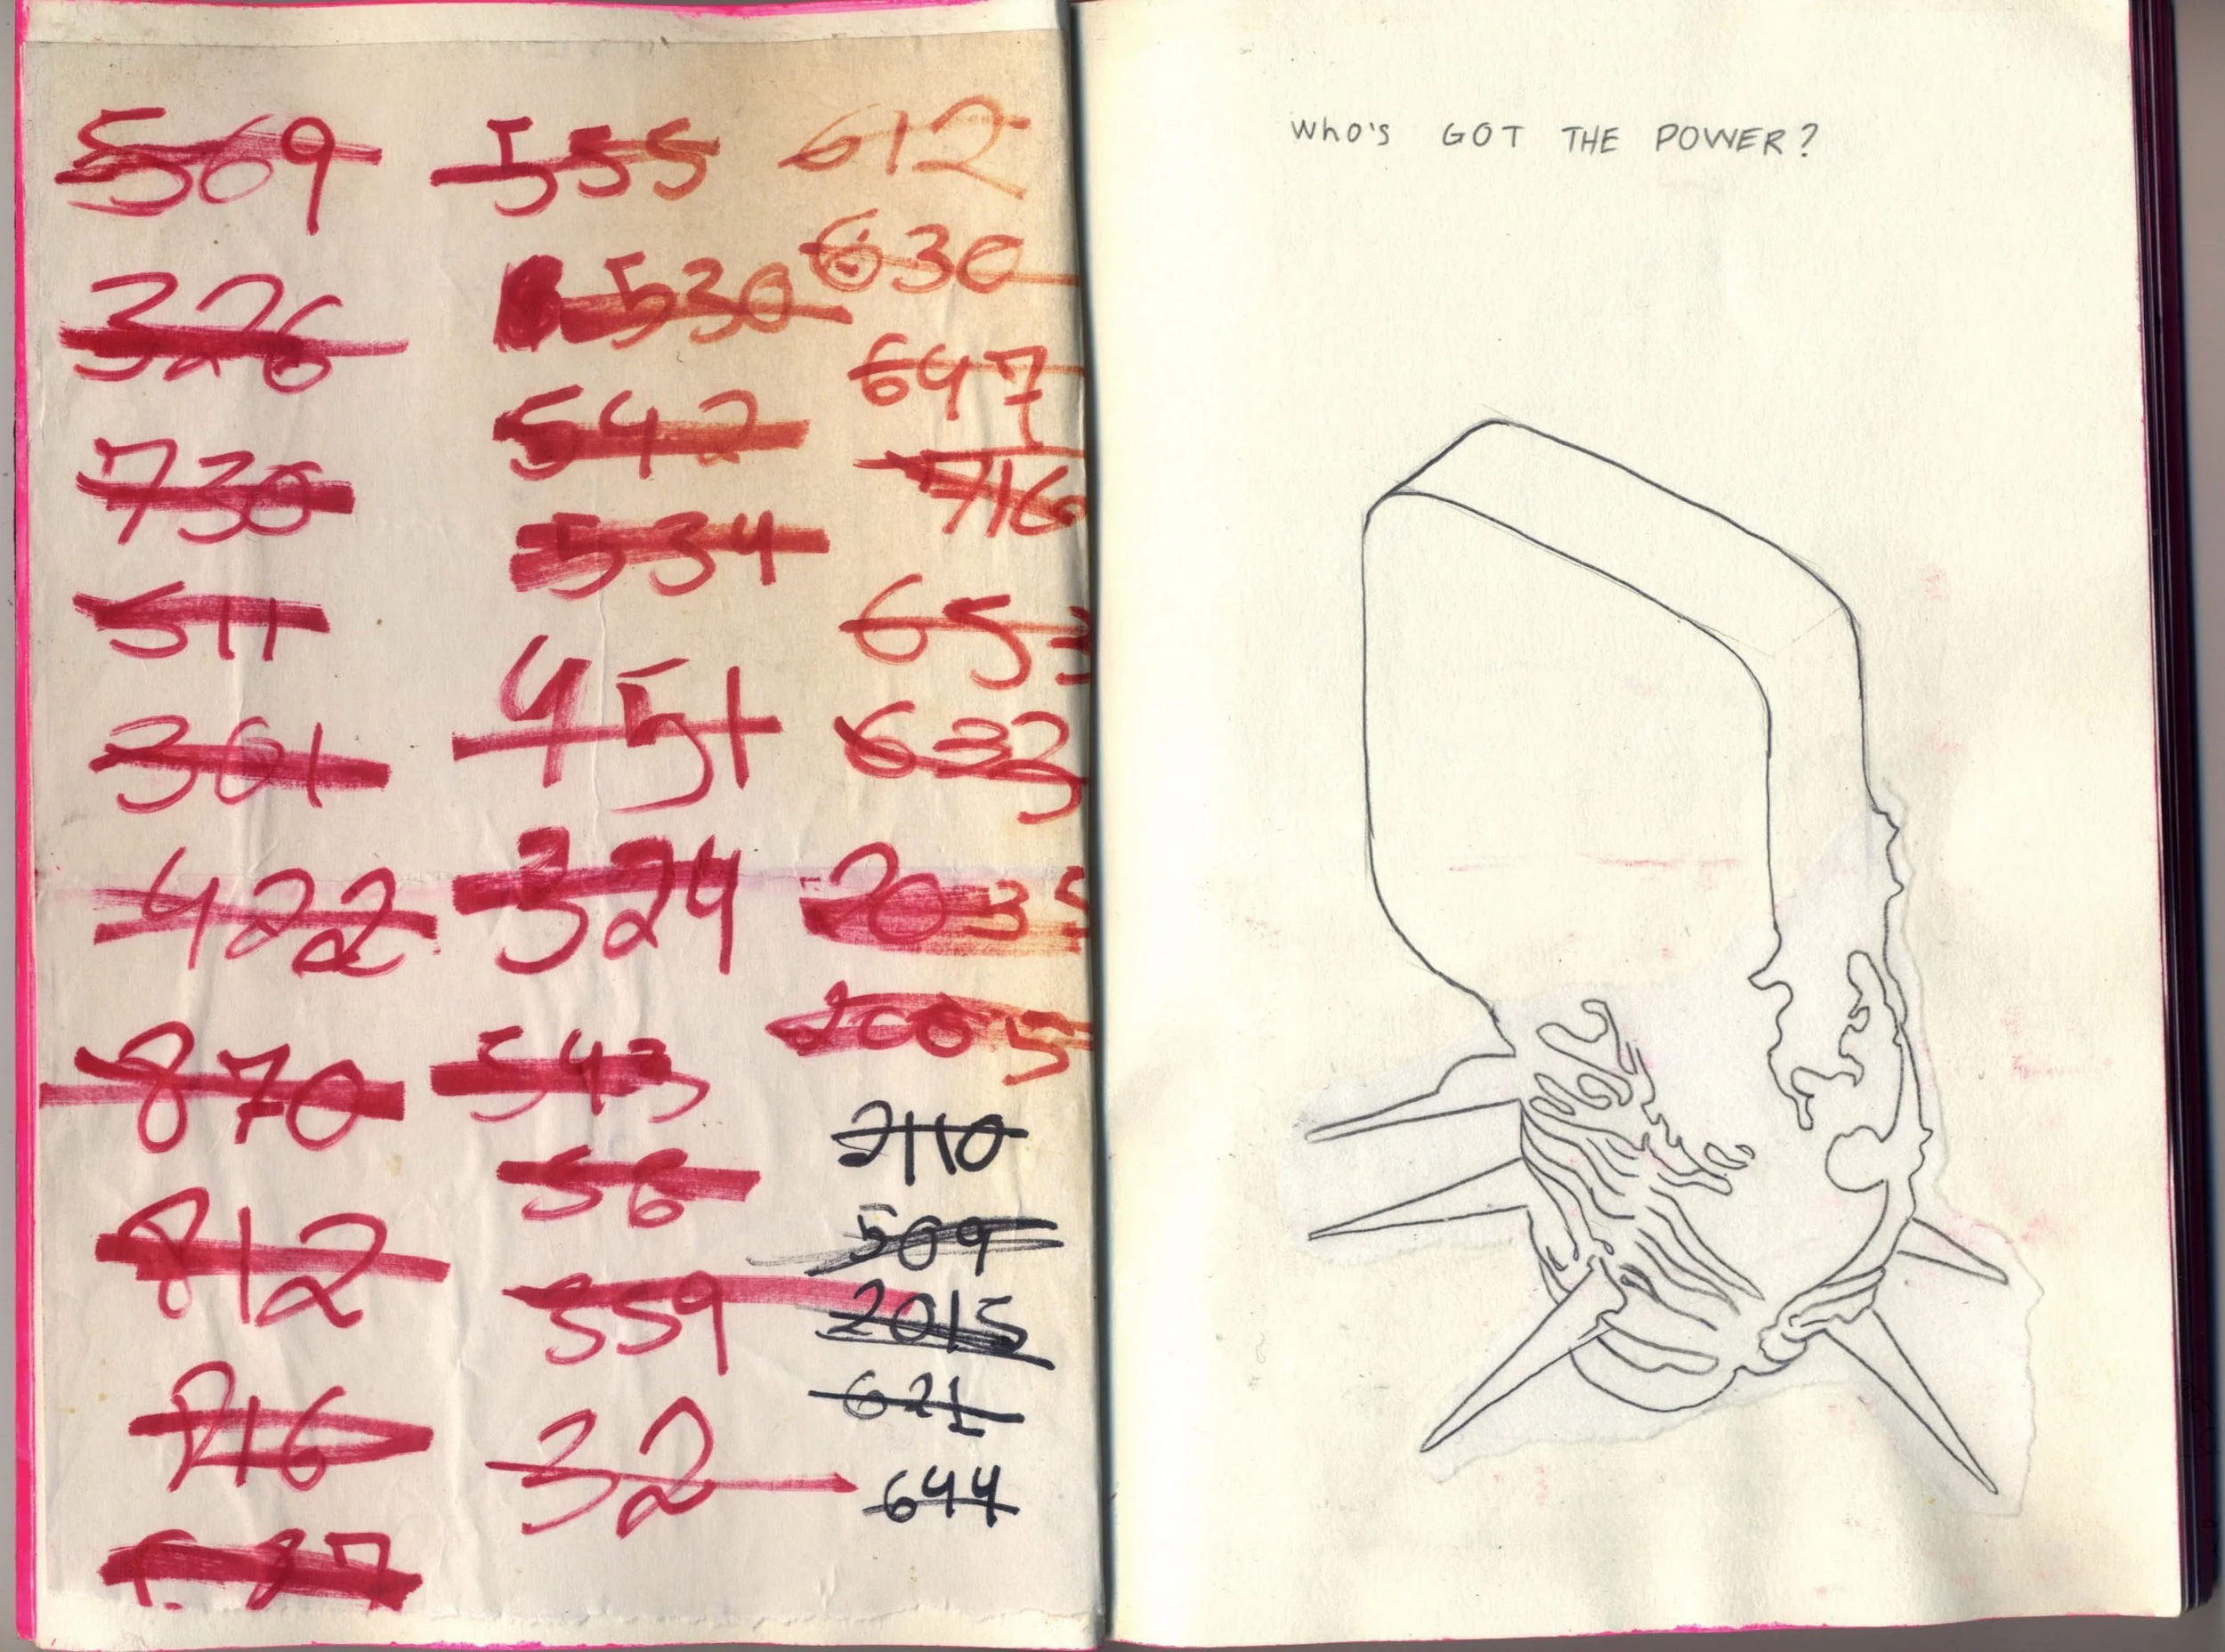 569
326
730
511
301
422
870
812
716
555
530
542
534
451
324
543
56
559
32
612
630
647
716
653
2035
2005
2110
509
2015
621
644
Who's GOT THE POWER?